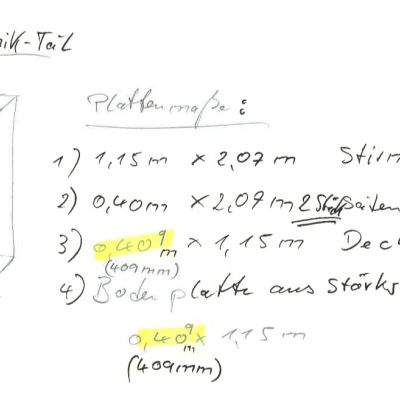 nik-Teil
Plattenmaße:
1) 1,15 m × 2,07 m Stirn
2) 0,40m × 2,07 m 2 Stück Seiten
3) 0,409 m × 1,15 m Deck
(409mm)
4) Bodenplatte aus Stärks
0,409 m × 1,15 m
(409mm)